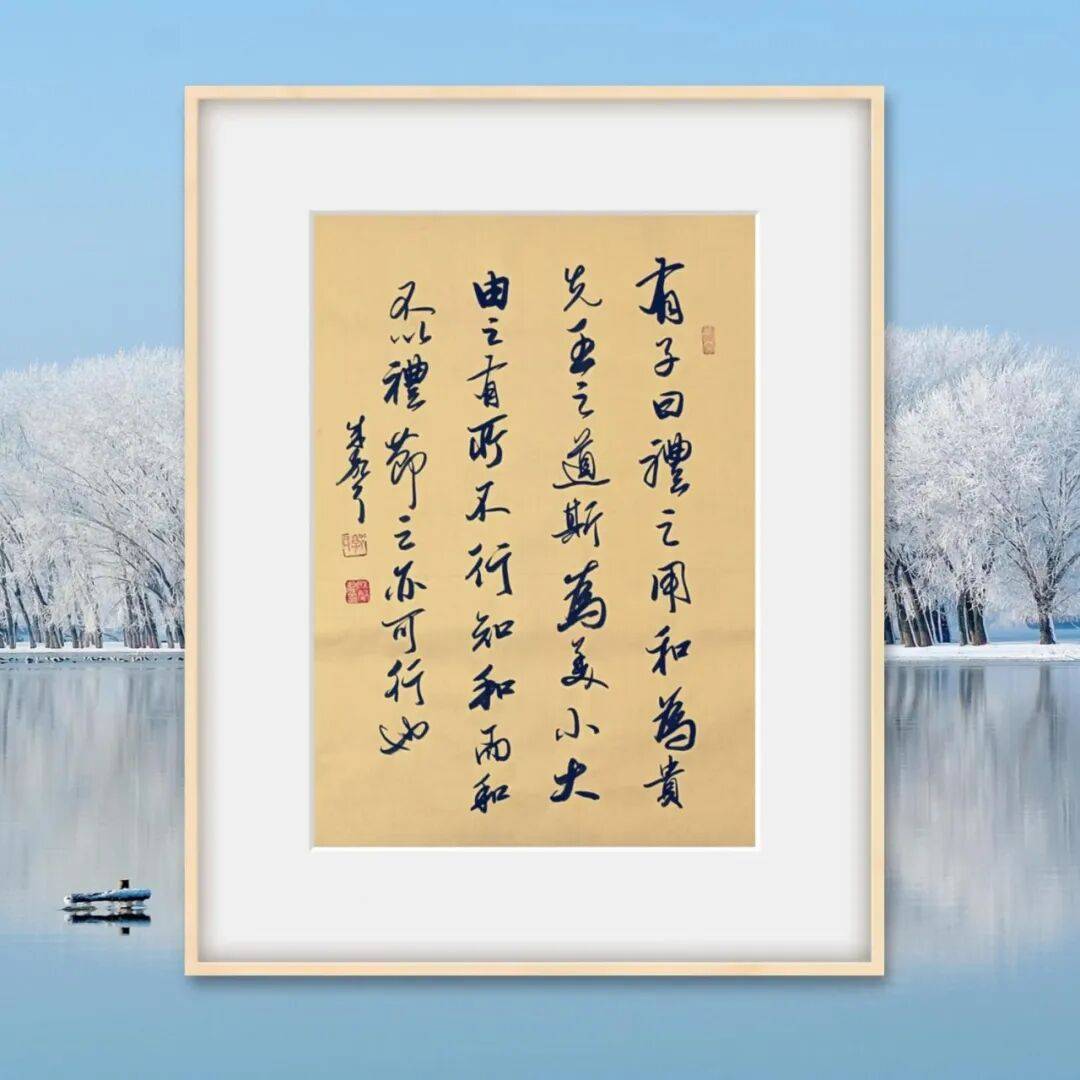 有子曰禮之用和為貴
先王之道斯為美小大
由之有所不行知和而和
不以禮節之亦可行也